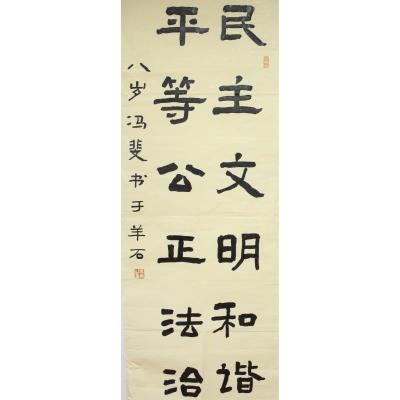 民主文明和谐
平等公正法治
八岁冯斐书于羊石